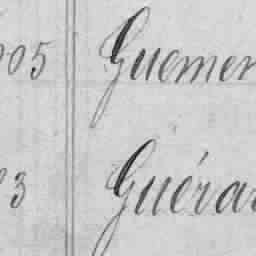 905 Guemen
3 Guérar